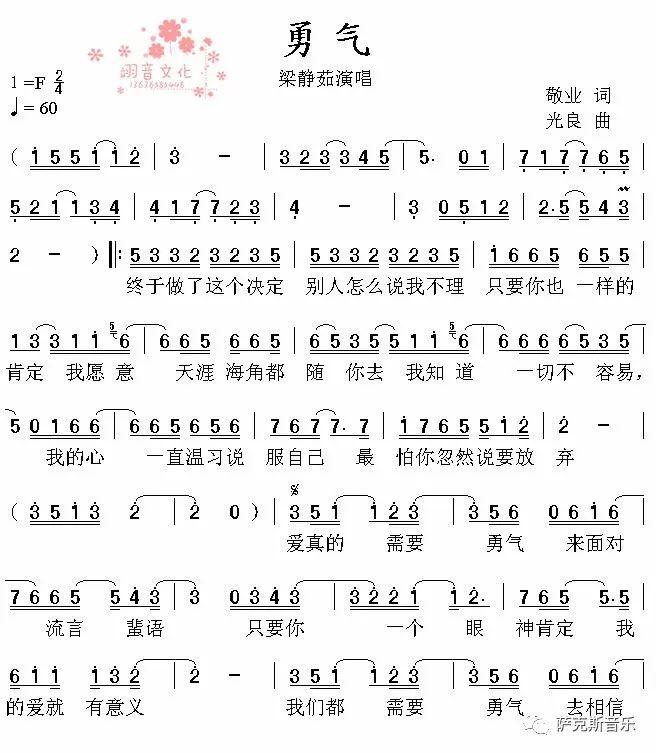 勇气
翊音文化
13636585448
梁静茹演唱
1=F 2/4
♩=60
敬业 词
光良 曲
( 1 5 5 1 1 2 | 3 - | 3 2 3 3 4 5 | 5. 0 1 | 7 1 7 7 6 5 |
5 2 1 1 3 4 | 4 1 7 7 2 3 | 4 - | 3 0 5 1 2 | 2. 5 5 4 3 |
2 - ) ‖: 5 3 3 2 3 2 3 5 | 5 3 3 2 3 2 3 5 | 1 6 6 5 6 5 |
终于做了这个决定 别人怎么说我不理 只要你也 一样的
1 3 3 1 1 5 6 | 6 6 5 6 6 5 | 6 5 3 5 5 1 1 5 6 | 6 6 6 5 3 5 |
肯定 我愿意 天涯海角都 随你去我知道 一切不容易，
5 0 1 6 6 | 6 6 5 6 5 6 | 7 6 7 7. 7 | 1 7 6 5 5 5 1 2 | 2 - |
我的心 一直温习说 服自己 最 怕你忽然说要放 弃
( 3 5 1 3 2 | 2 2 0 ) | 3 5 1 1 2 3 | 3 5 6 0 6 1 6 |
爱真的 需要 勇气 来面对
7 6 6 5 4 3 | 3 0 3 4 3 | 3 2 2 1 1 2. | 5 7 6 5 5. 5 |
流言 蜚语 只要你 一个 眼 神肯定 我
6 1 1 1 3 2 | 2 3 5 1 | 1 2 3 3 5 6 | 0 6 1 6 |
的爱就 有意义 我们都 需要 勇气 去相信
萨克斯音乐